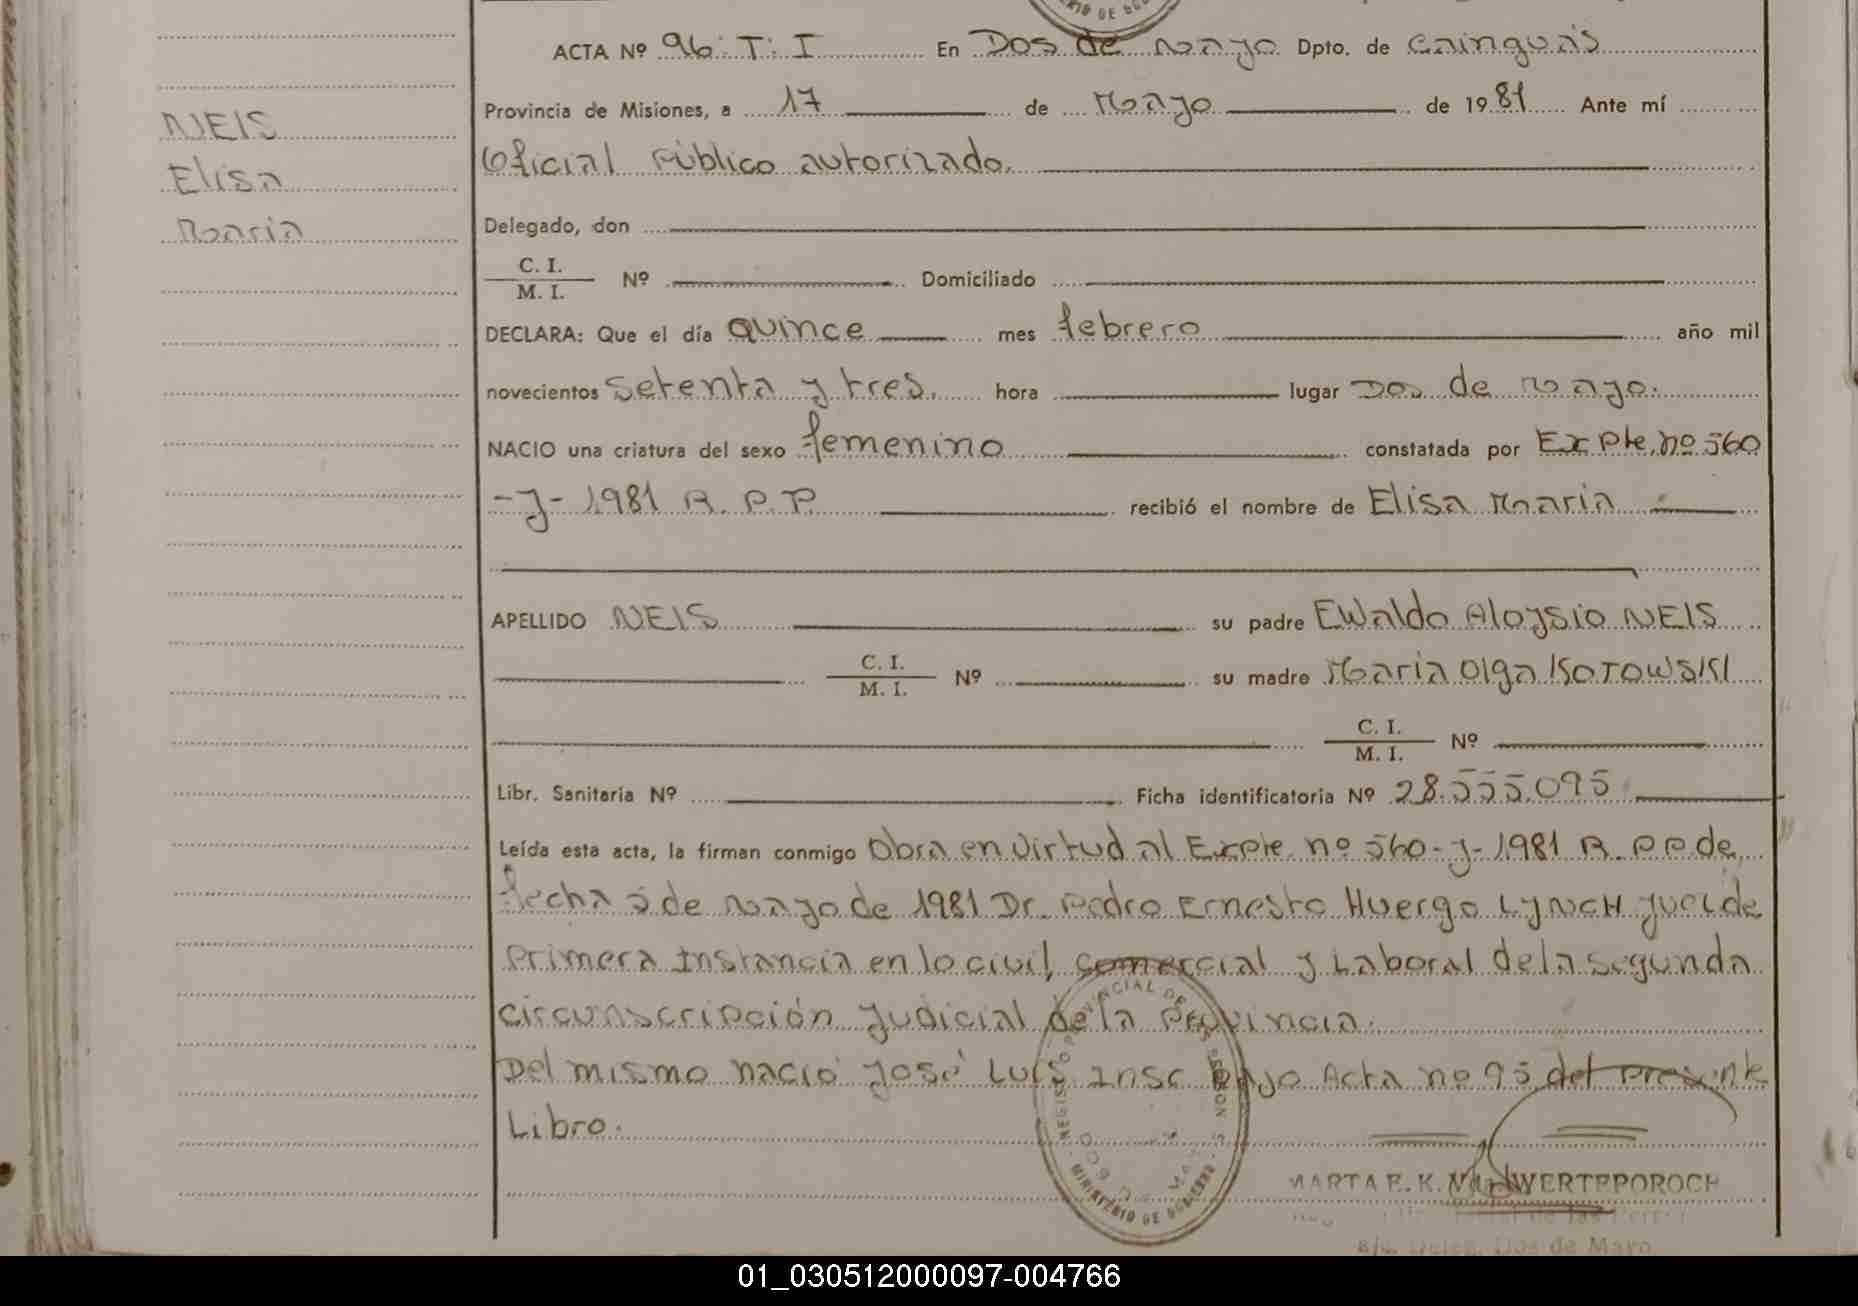 NEIS
Elisa
Maria
ACTA Nº 96. T: I En Dos de Mayo Dpto. de Cainguás
Provincia de Misiones, a 17 de Mayo de 1981 Ante mí
Oficial Público autorizado.
Delegado, don
C. I.
M. I. Nº Domiciliado
DECLARA: Que el día quince mes febrero año mil
novecientos setenta y tres. hora lugar Dos de Mayo.
NACIO una criatura del sexo femenino constatada por Expte. nº 560
-J- 1981 R. P. P. recibió el nombre de Elisa Maria
APELLIDO NEIS su padre Ewaldo Aloysio NEIS
C. I.
M. I. Nº su madre Maria Olga KOTOWSKI
C. I.
M. I. Nº
Libr. Sanitaria Nº Ficha identificatoria Nº 28.555.095
Leída esta acta, la firman conmigo Obra en virtud al Expte. nº 560-J-1981 R. P.P. de
fecha 5 de Mayo de 1981 Dr. Pedro Ernesto Huergo LYNCH Juez de
Primera Instancia en lo civil, comercial y Laboral de la segunda
circunscripción Judicial de la Provincia.
Del mismo nació José Luis Insc bajo Acta nº 95 del presente
Libro.
REGISTRO PROVINCIAL DE LAS PERSONAS
DOS DE MAYO
MINISTERIO DE GOBIERNO
MARTA E. K. WERTEPOROCH
de las Pers
a/c. Deleg. Dos de Mayo
01_030512000097-004766